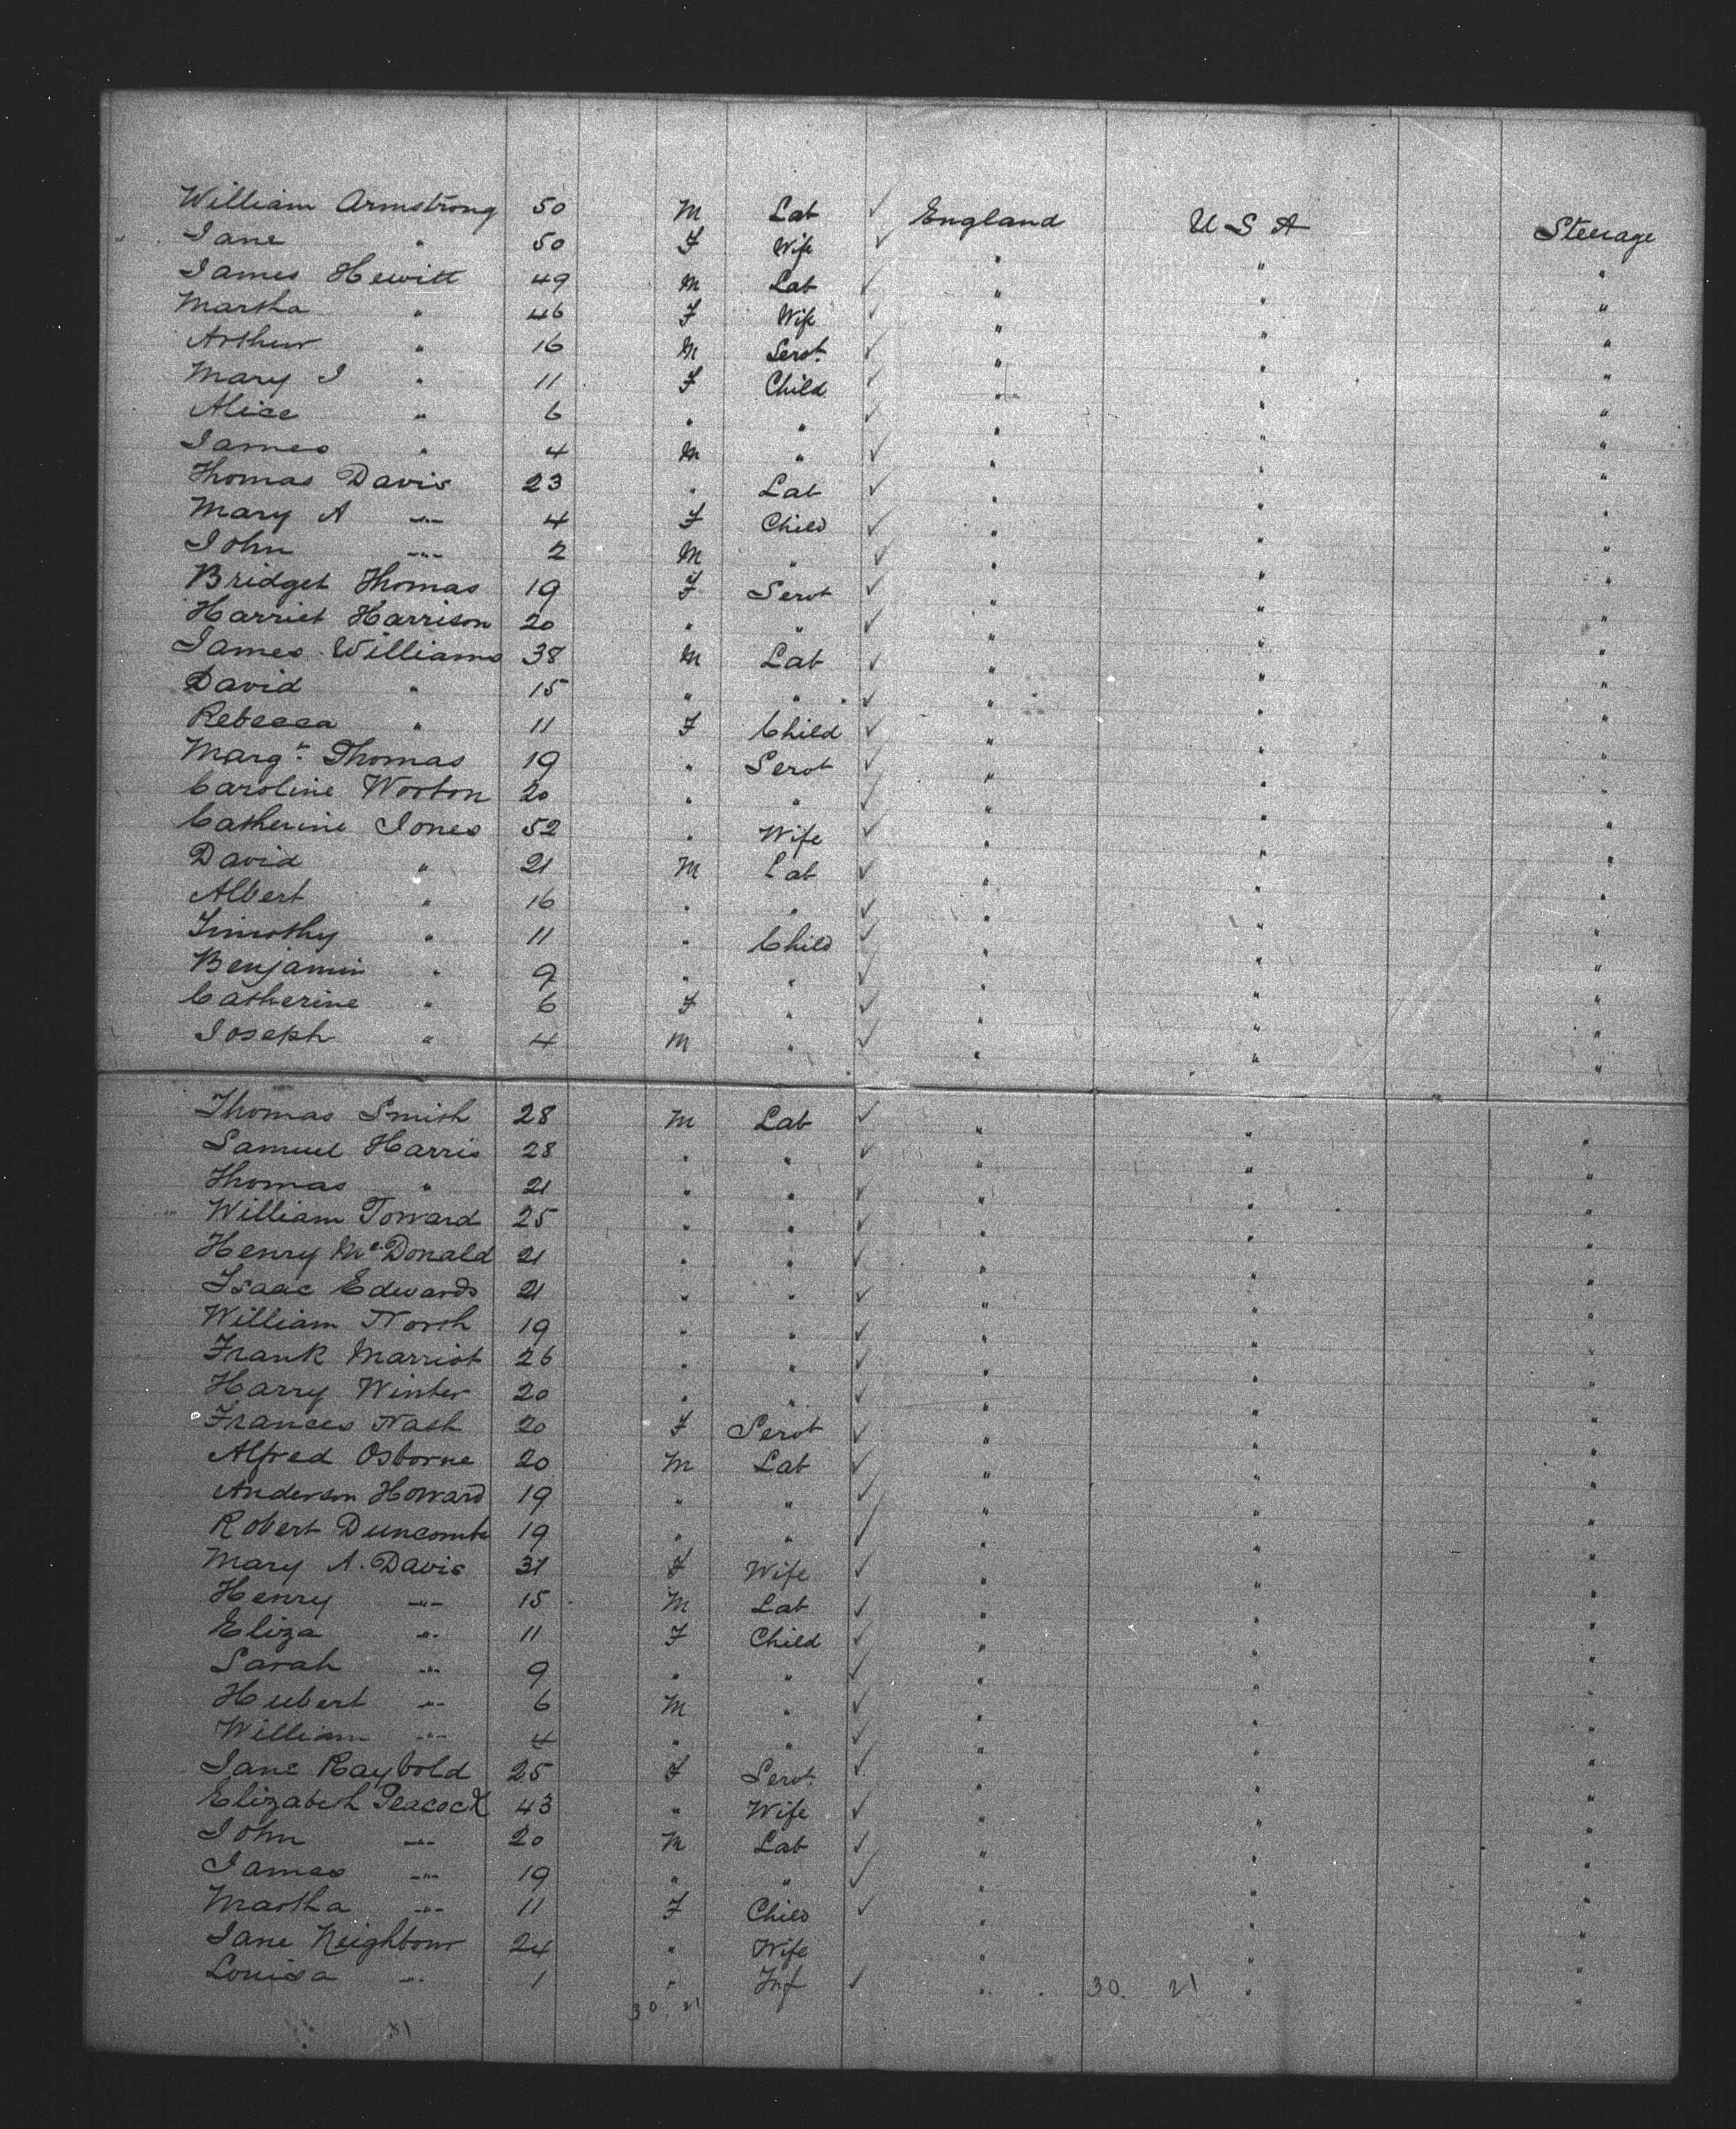 William Armstrong 50 M Lab ✓ England U S A Steerage
Jane " 50 F Wife ✓ " " "
James Hewitt 49 M Lab ✓ " " "
Martha " 46 F Wife ✓ " " "
Arthur " 16 M Servt. ✓ " " "
Mary J " 11 F Child ✓ " " "
Alice " 6 " " ✓ " " "
James " 4 M " ✓ " " "
Thomas Davis 23 " Lab ✓ " " "
Mary A " 4 F Child ✓ " " "
John " 2 M " ✓ " " "
Bridget Thomas 19 F Servt ✓ " " "
Harriet Harrison 20 " " ✓ " " "
James Williams 38 M Lab ✓ " " "
David " 15 " " ✓ " " "
Rebecca " 11 F Child ✓ " " "
Margt. Thomas 19 " Servt ✓ " " "
Caroline Worton 20 " " ✓ " " "
Catherine Jones 52 " Wife ✓ " " "
David " 21 M Lab ✓ " " "
Albert " 16 " " ✓ " " "
Timothy " 11 " Child ✓ " " "
Benjamin " 9 " " ✓ " " "
Catherine " 6 F " ✓ " " "
Joseph " 4 M " ✓ " " "
Thomas Smith 28 M Lab ✓ " " "
Samuel Harris 28 " " ✓ " " "
Thomas " 21 " " ✓ " " "
William Toward 25 " " ✓ " " "
Henry McDonald 21 " " ✓ " " "
Isaac Edwards 21 " " ✓ " " "
William North 19 " " ✓ " " "
Frank Marriot 26 " " ✓ " " "
Harry Winter 20 " " ✓ " " "
Frances Nash 20 F Servt ✓ " " "
Alfred Osborne 20 M Lab ✓ " " "
Anderson Howard 19 " " ✓ " " "
Robert Duncombe 19 " " ✓ " " "
Mary A. Davis 31 F Wife ✓ " " "
Henry " 15 M Lab ✓ " " "
Eliza " 11 F Child ✓ " " "
Sarah " 9 " " ✓ " " "
Hubert " 6 M " ✓ " " "
William " 4 " " ✓ " " "
Jane Raybold 25 F Servt. ✓ " " "
Elizabeth Peacock 43 " Wife ✓ " " "
John " 20 M Lab ✓ " " "
James " 19 " " ✓ " " "
Martha " 11 F Child ✓ " " "
Jane Neighbour 24 " Wife " " "
Louisa " 1 " Inf ✓ " 30. 21 " "
30. 21